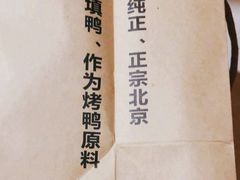 纯正、正宗北京
填鸭、作为烤鸭原料